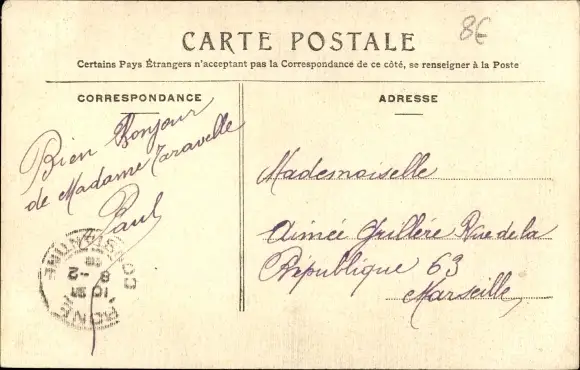 8€
CARTE POSTALE
Certains Pays Étrangers n'acceptant pas la Correspondance de ce côté, se renseigner à la Poste
CORRESPONDANCE
Bien Bonjour
de Madame Taravelle
Paul
CONSTANTINE
8 -2
10
BONE
ADRESSE
Mademoiselle
Aimée Guillére Rue de la
République 63
Marseille